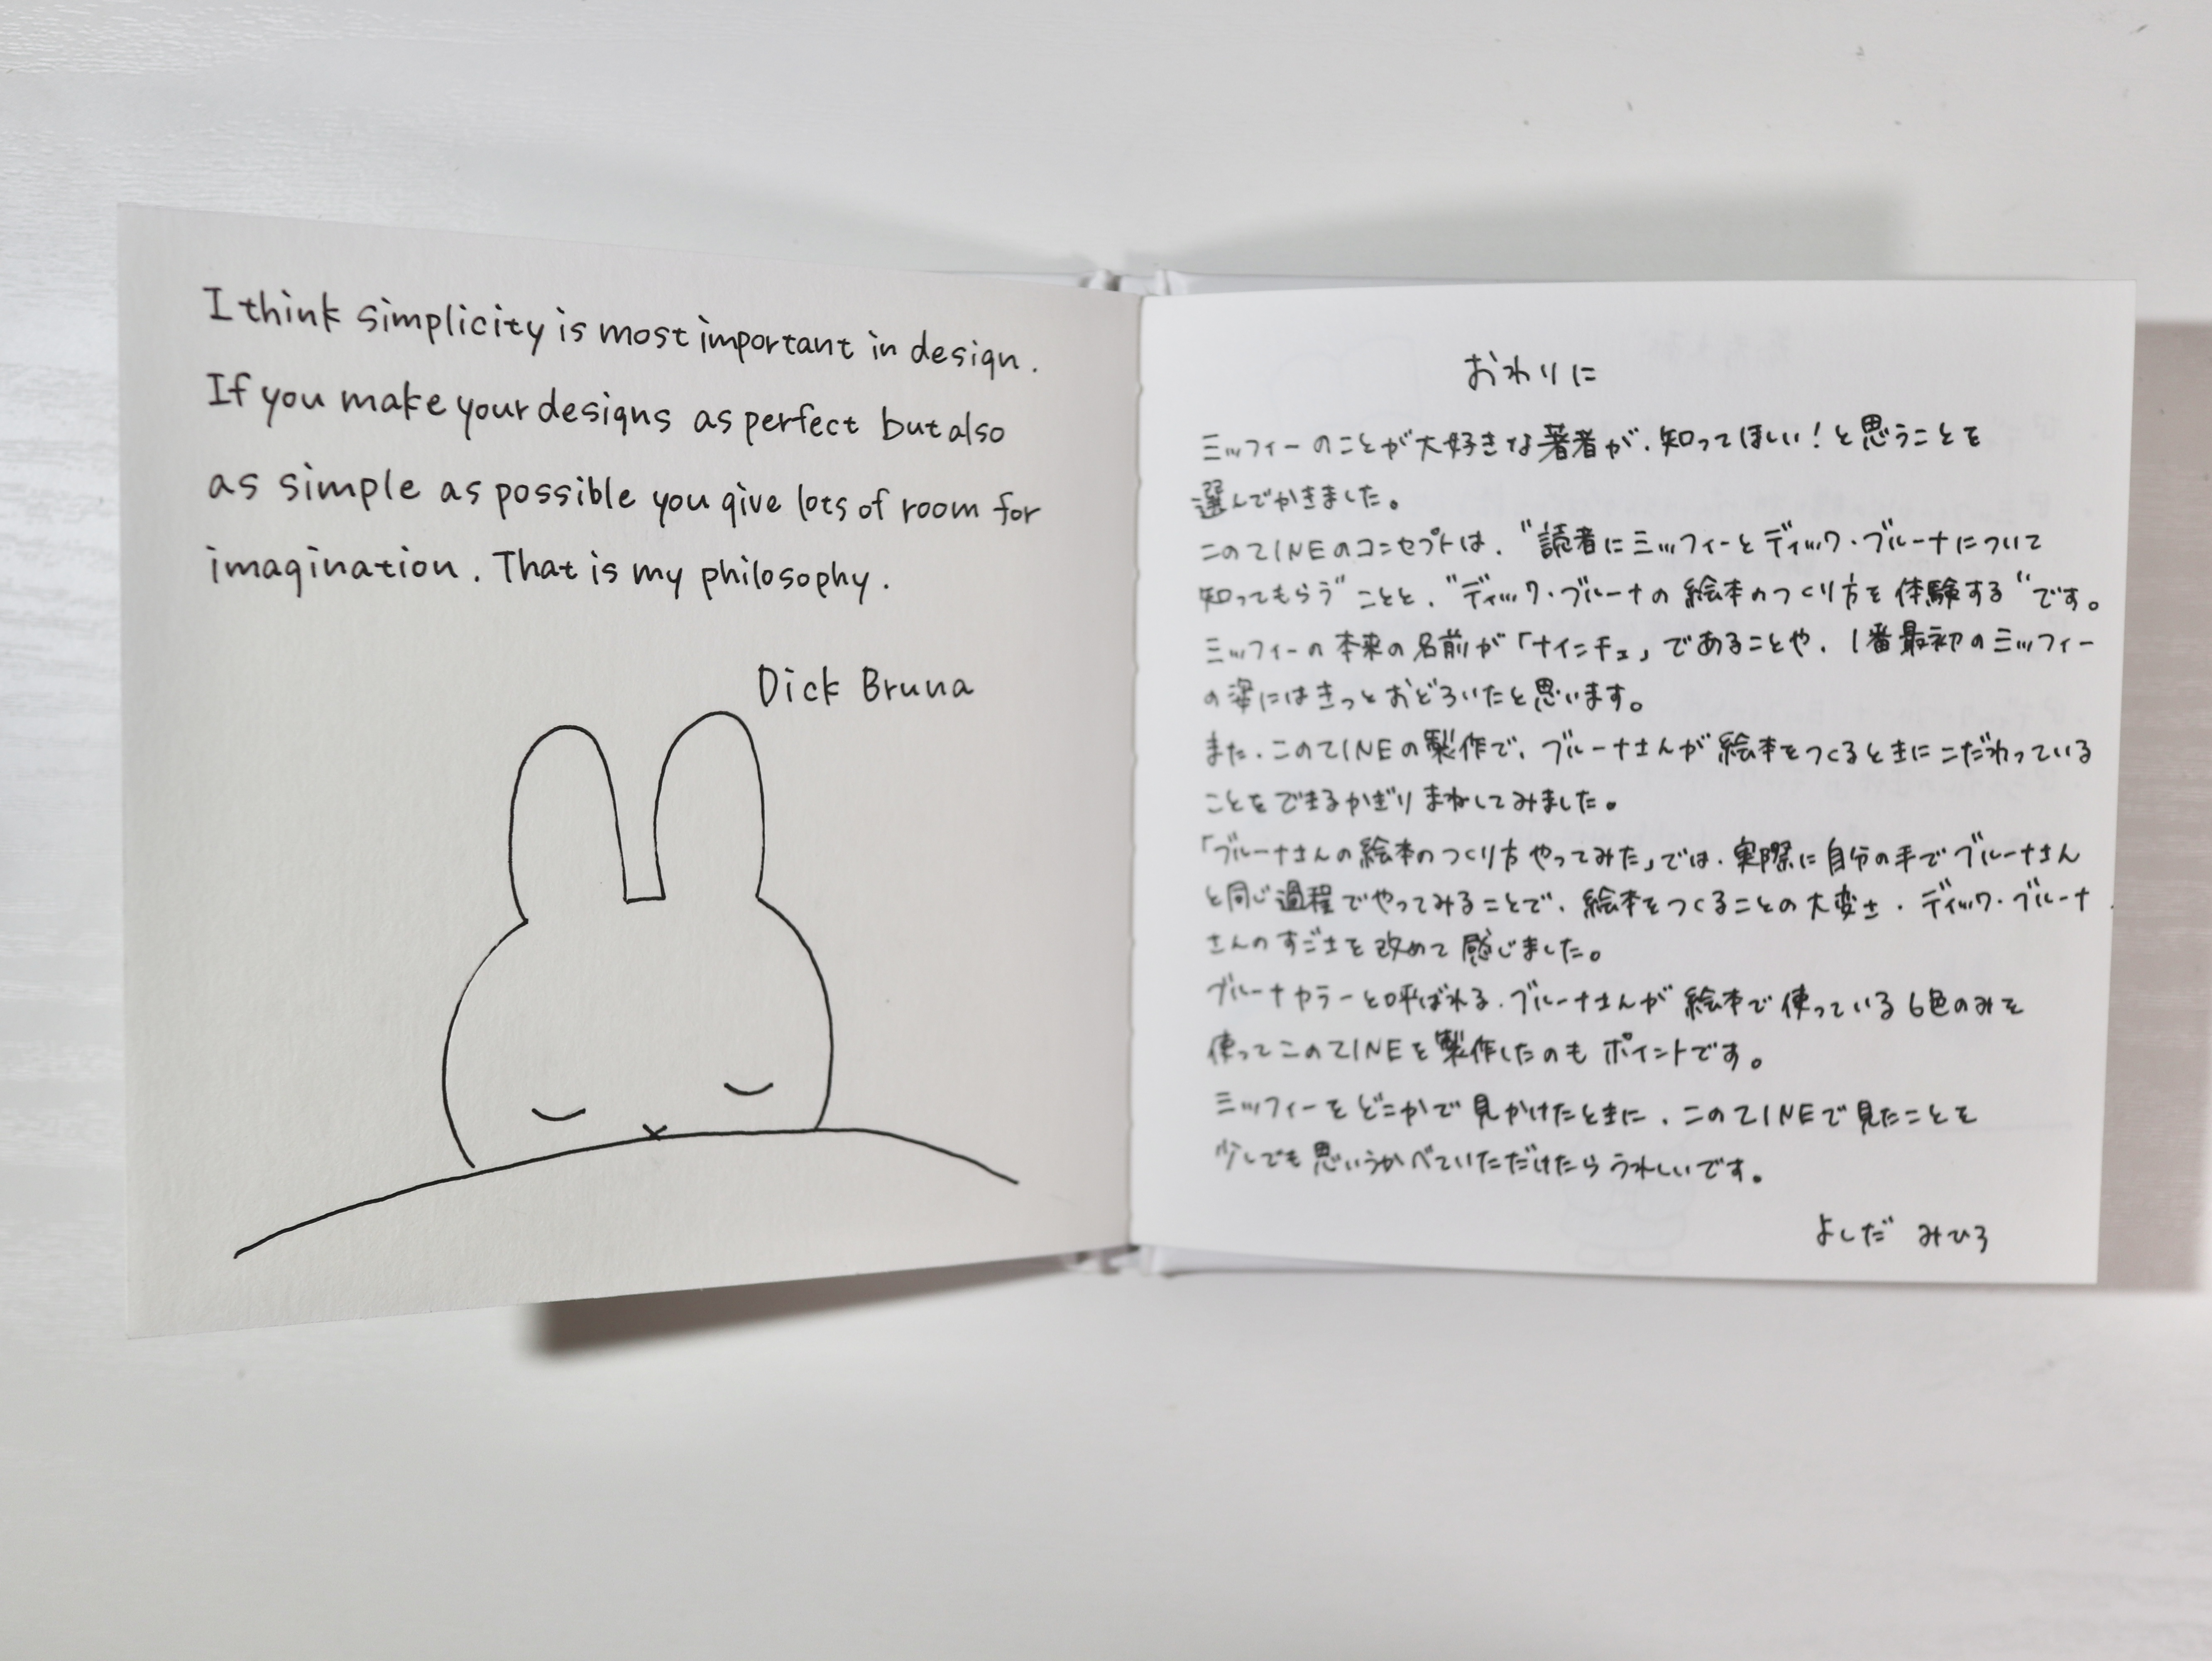 I think simplicity is most important in design.
If you make your designs as perfect but also
as simple as possible you give lots of room for
imagination. That is my philosophy.
Dick Bruna
おわりに
ミッフィーのことが大好きな著者が、知ってほしい！と思うことを
選んでかきました。
このZINEのコンセプトは、"読者にミッフィーとディック・ブルーナについて
知ってもらう"ことと、"ディック・ブルーナの絵本のつくり方を体験する"です。
ミッフィーの本来の名前が「ナインチェ」であることや、1番最初のミッフィー
の姿にはきっとおどろいたと思います。
また、このZINEの製作で、ブルーナさんが絵本をつくるときにこだわっている
ことをできるかぎりまねしてみました。
「ブルーナさんの絵本のつくり方やってみた」では、実際に自分の手でブルーナさん
と同じ過程でやってみることで、絵本をつくることの大変さ、ディック・ブルーナ
さんのすごさを改めて感じました。
ブルーナカラーと呼ばれる、ブルーナさんが絵本で使っている6色のみを
使ってこのZINEを製作したのもポイントです。
ミッフィーをどこかで見かけたときに、このZINEで見たことを
少しでも思いうかべていただけたらうれしいです。
よしだ みひろ